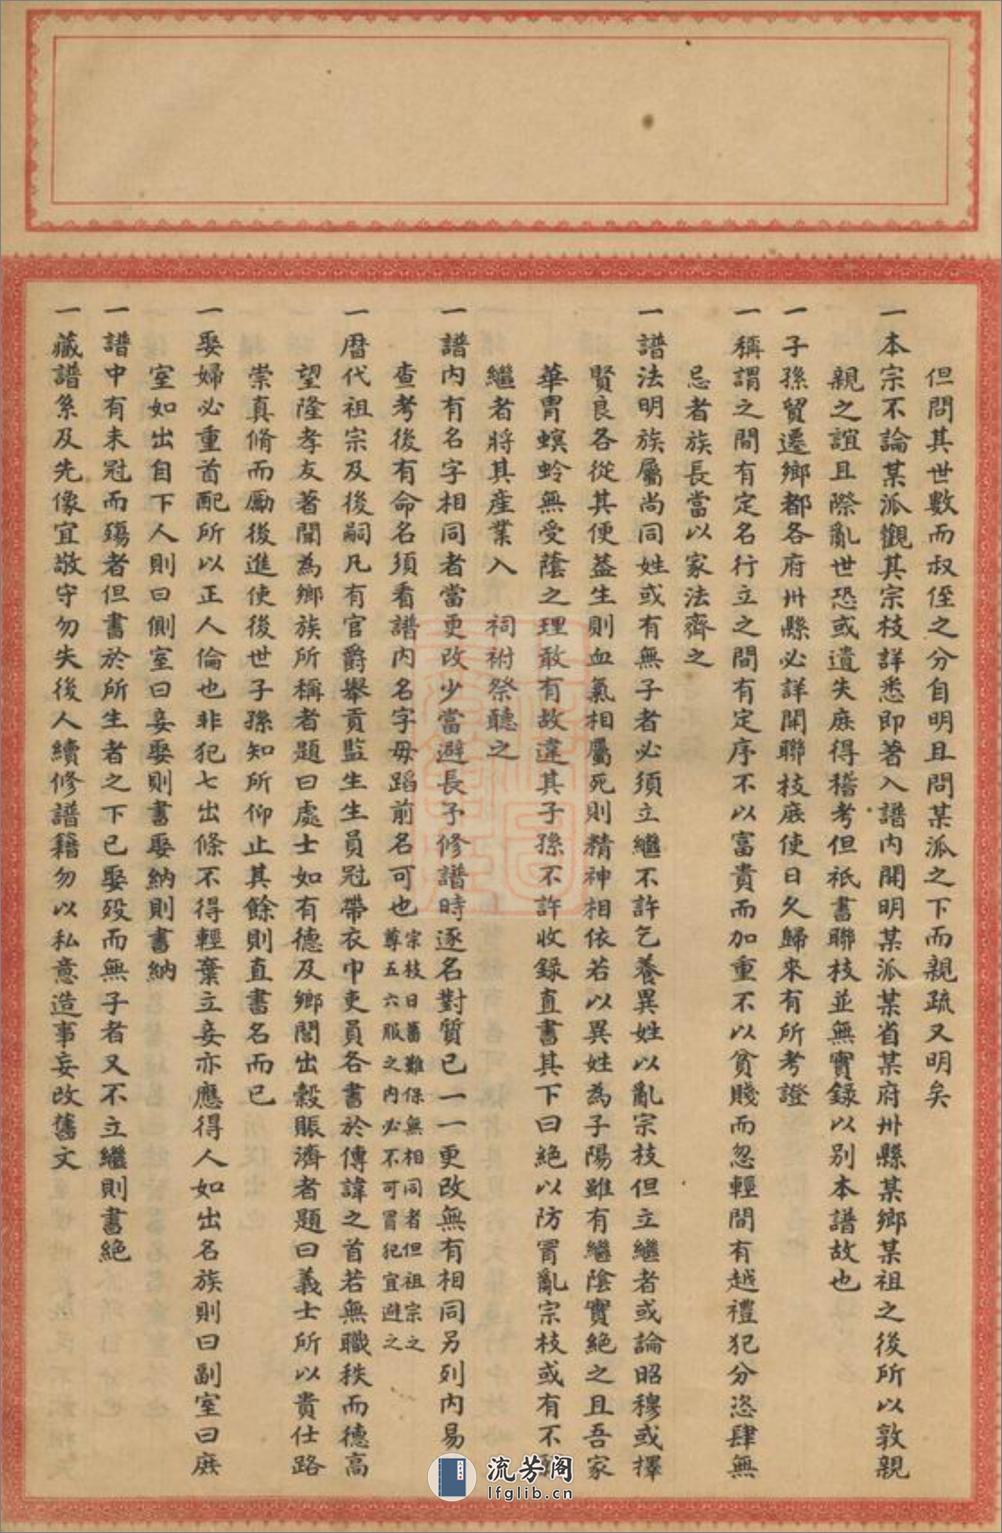 但問其世數而叔侄之分自明且問某派之下而親疏又明矣
一本宗不論某派觀其宗枝詳悉即著入譜內開明某派某省某府州縣某鄉某祖之後所以敦親
親之誼且際亂世恐或遺失庶得稽考但祇書聯枝並無實錄以別本譜故也
一子孫貿遷鄉都各府州縣必詳開聯枝庶使日久歸來有所考證
一稱謂之間有定名行立之間有定序不以富貴而加重不以貧賤而忽輕間有越禮犯分恣肆無
忌者族長當以家法齊之
一譜法明族屬尚同姓或有無子者必須立繼不許乞養異姓以亂宗枝但立繼者或論昭穆或擇
賢良各從其便蓋生則血氣相屬死則精神相依若以異姓為子陽雖有繼陰實絕之且吾家
華胄螟蛉無受蔭之理敢有故違其子孫不許收錄直書其下曰絕以防冒亂宗枝或有不
繼者將其產業入 祠祔祭聽之
一譜內有名字相同者當更改少當避長予修譜時逐名對質已一一更改無有相同另列內易
查考後有命名須看譜內名字毋蹈前名可也宗枝日蕃難保無相同者但祖宗之
尊五六服之內必不可冒犯宜避之
一曆代祖宗及後嗣凡有官爵舉貢監生生員冠帶衣巾吏員各書於傳諱之首若無職秩而德高
望隆孝友著聞為鄉族所稱者題曰處士如有德及鄉閭出穀賑濟者題曰義士所以貴仕路
崇真脩而勵後進使後世子孫知所仰止其餘則直書名而已
一娶婦必重首配所以正人倫也非犯七出條不得輕棄立妾亦應得人如出名族則曰副室曰庶
室如出自下人則曰側室曰妾娶則書娶納則書納
一譜中有未冠而殤者但書於所生者之下已娶歿而無子者又不立繼則書絕
一藏譜系及先像宜敬守勿失後人續修譜籍勿以私意造事妄改舊文
流芳阁
lfglib.cn